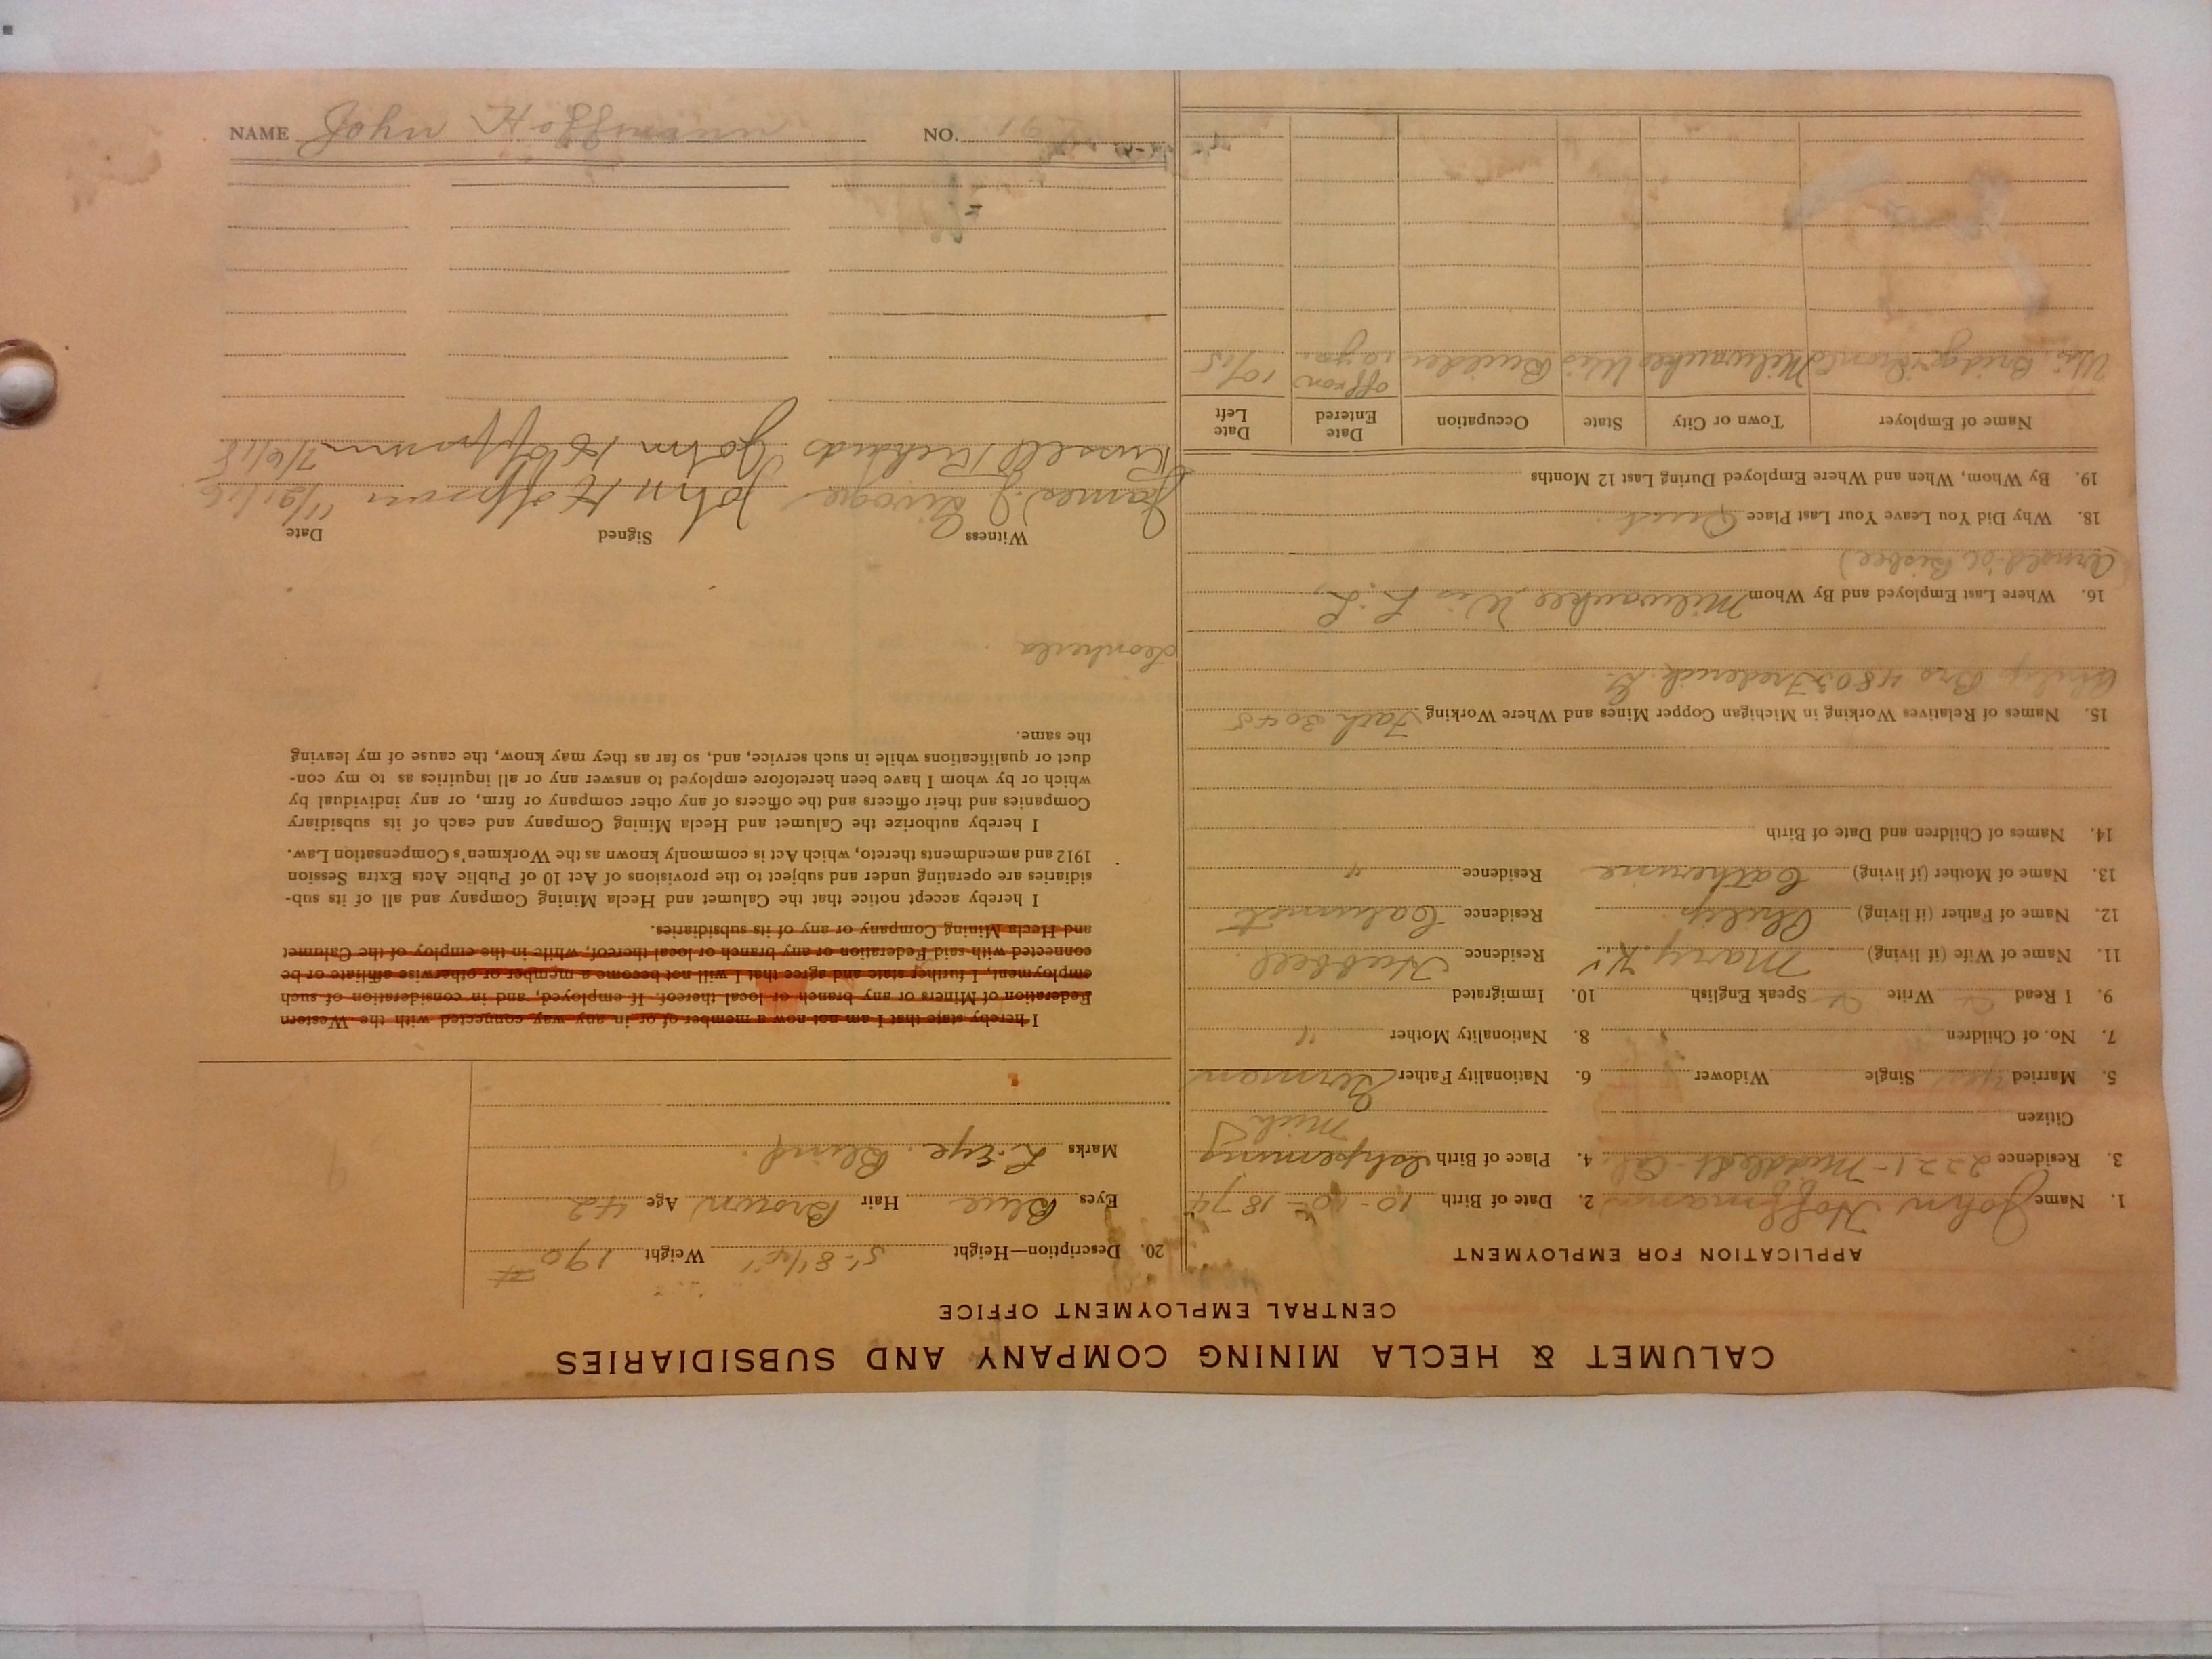 CALUMET & HECLA MINING COMPANY AND SUBSIDIARIES
CENTRAL EMPLOYMENT OFFICE
APPLICATION FOR EMPLOYMENT
1. Name John Hoffmann 2. Date of Birth 10-10-1874
3. Residence 2221- Middle St. Cal. 4. Place of Birth Ishpeming
Citizen Mich
5. Married Yes Single Widower 6. Nationality Father German
7. No. of Children 8. Nationality Mother "
9. I Read Write Speak English 10. Immigrated
11. Name of Wife (if living) Mary Residence Hubbell
12. Name of Father (if living) Philip Residence Calumet
13. Name of Mother (if living) Catherine Residence "
14. Names of Children and Date of Birth
15. Names of Relatives Working in Michigan Copper Mines and Where Working Fath 3045
Philip Bro 4803 Frederick
16. Where Last Employed and By Whom Milwaukee Wis
18. Why Did You Leave Your Last Place Quit
19. By Whom, When and Where Employed During Last 12 Months
Name of Employer Town or City State Occupation Date Entered Date Left
Wis. Bridge & Iron Milwaukee Wis Builder off & on yrs. 10/15
20. Description—Height 5'-8 1/4" Weight 190 #
Eyes Blue Hair Brown Age 42
Marks L. Eye. Blind.
I hereby state that I am not now a member of or in any way connected with the Western
Federation of Miners or any branch or local thereof. If employed, and in consideration of such
employment, I further state and agree that I will not become a member or otherwise affiliate or be
connected with said Federation or any branch or local thereof, while in the employ of the Calumet
and Hecla Mining Company or any of its subsidiaries.
I hereby accept notice that the Calumet and Hecla Mining Company and all of its sub-
sidiaries are operating under and subject to the provisions of Act 10 of Public Acts Extra Session
1912 and amendments thereto, which Act is commonly known as the Workmen's Compensation Law.
I hereby authorize the Calumet and Hecla Mining Company and each of its subsidiary
Companies and their officers and the officers of any other company or firm, or any individual by
which or by whom I have been heretofore employed to answer any or all inquiries as to my con-
duct or qualifications while in such service, and, so far as they may know, the cause of my leaving
the same.
Witness Signed Date
James J. John Hoffman 11/21/16
Russell Richards John Hoffman 7/6/18
NAME John Hoffmann NO.